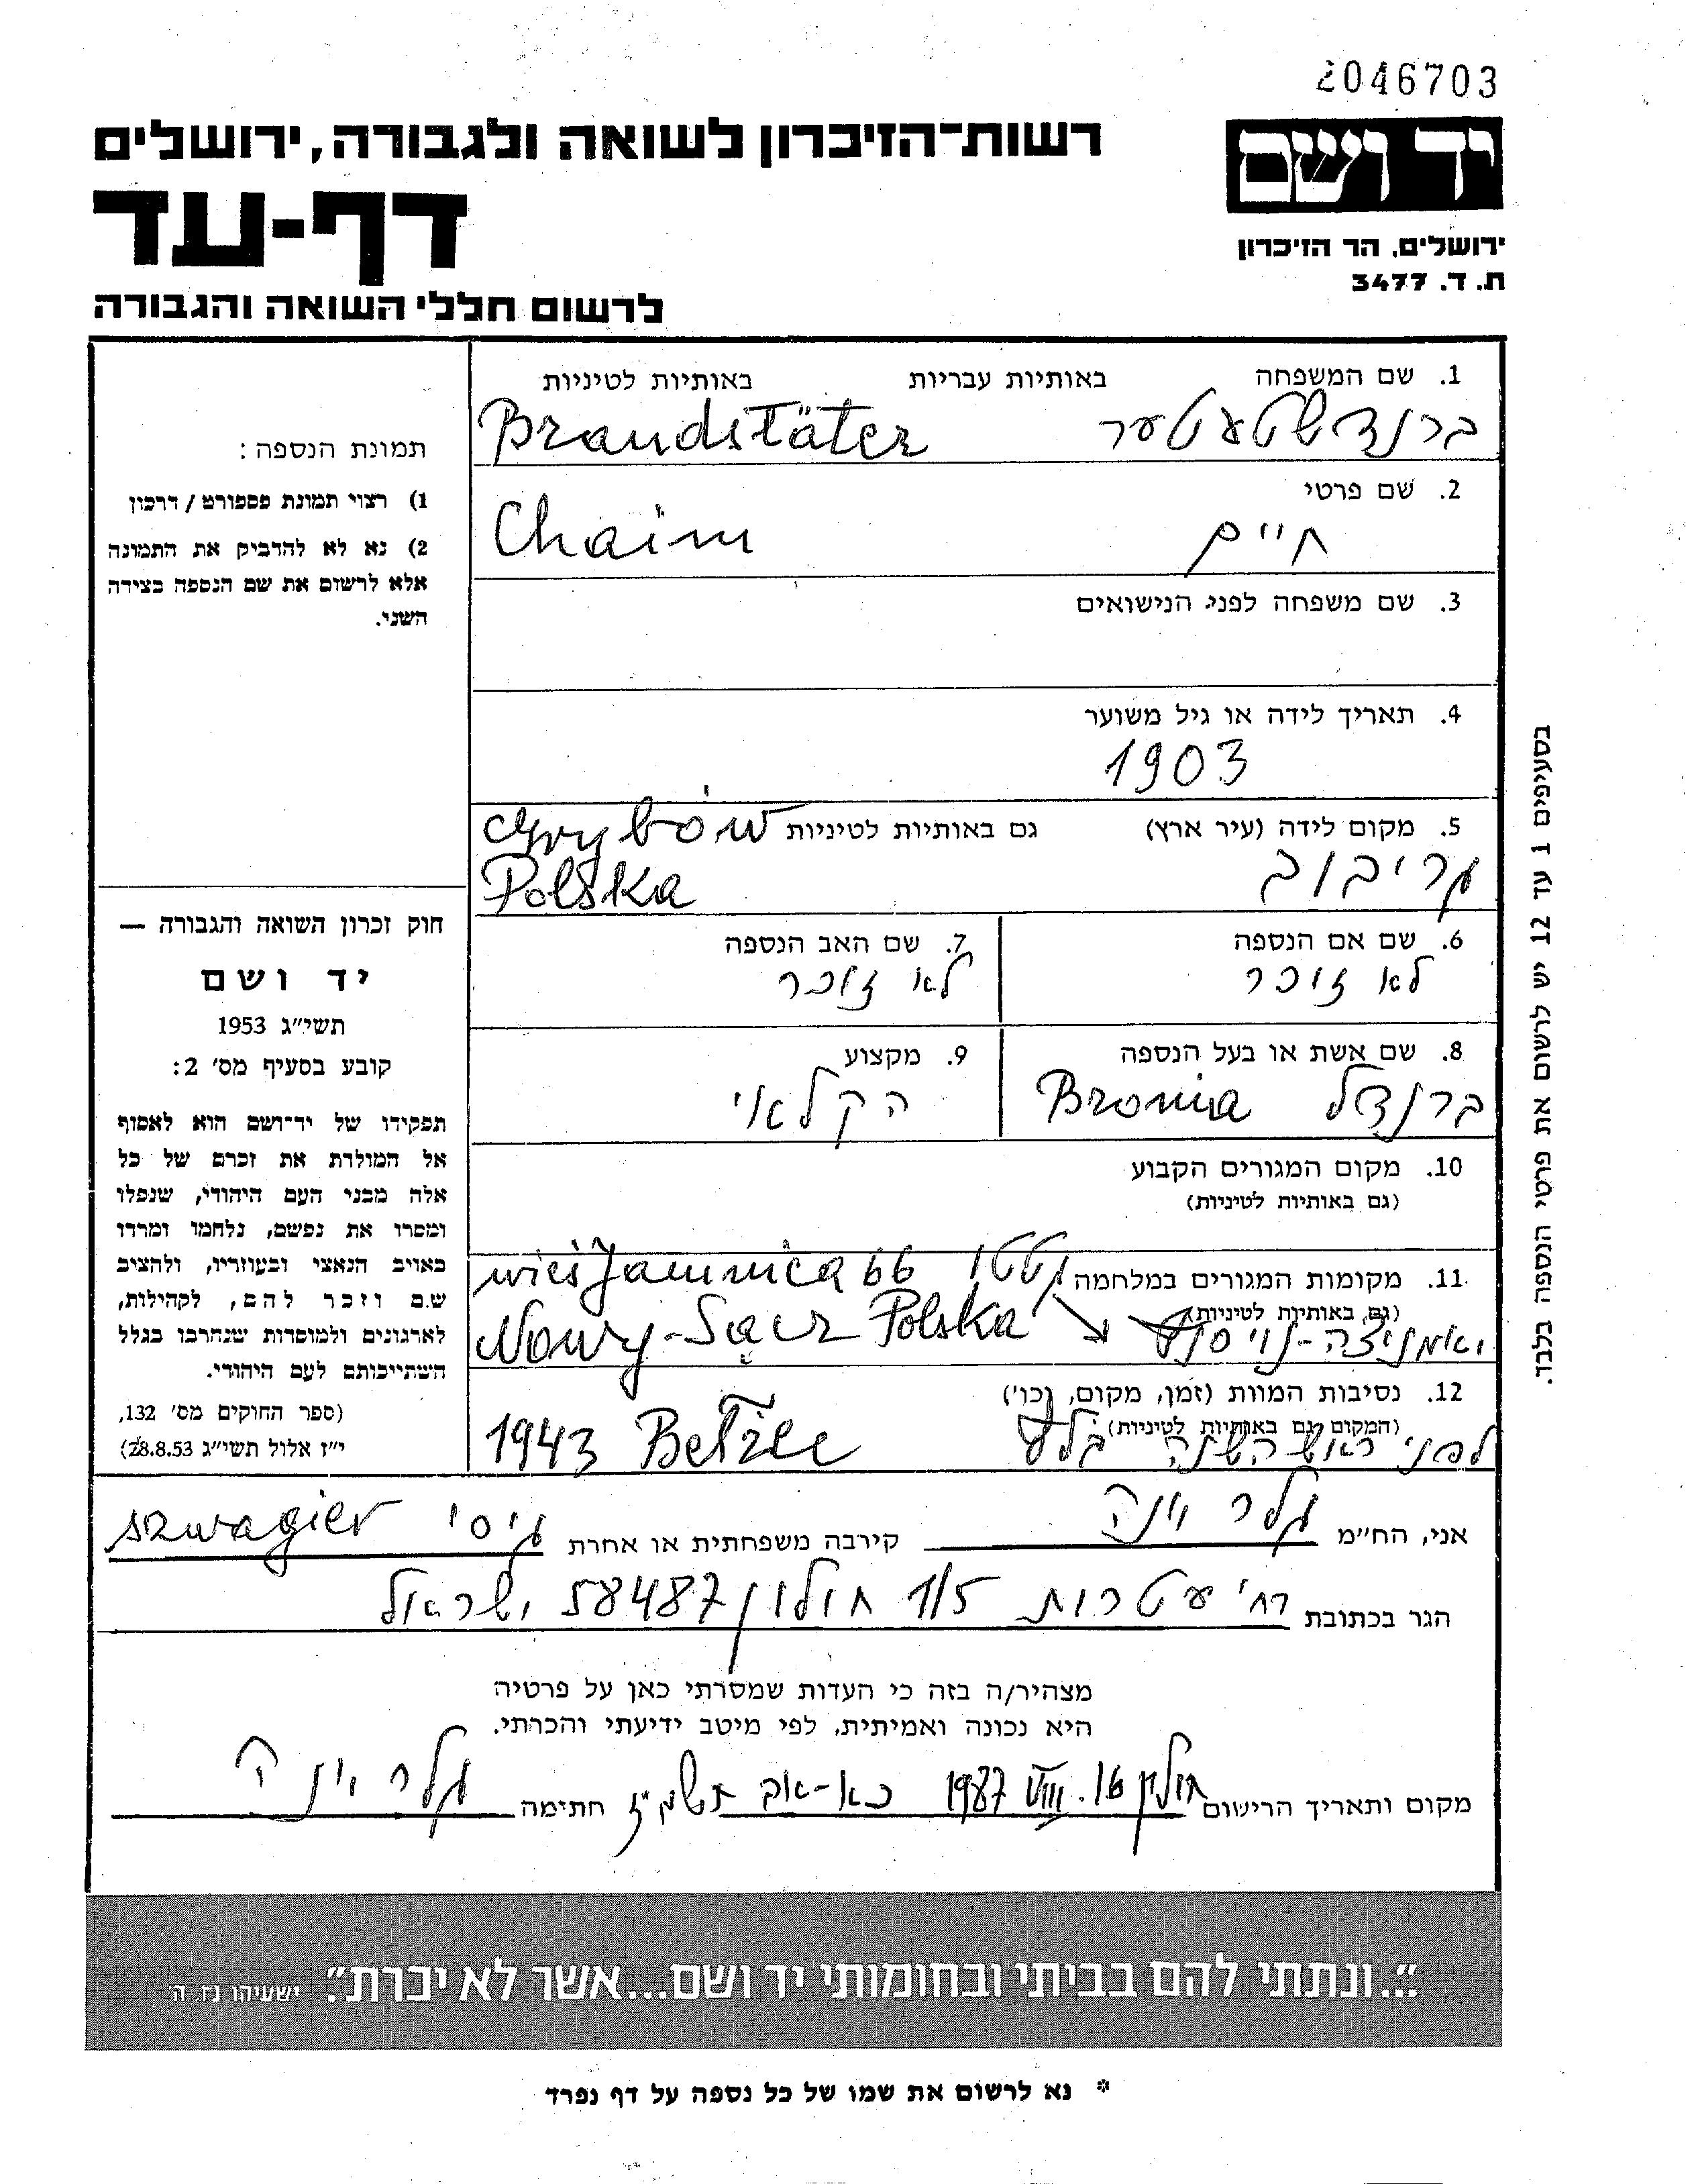 2046703
רשות־הזיכרון לשואה ולגבורה, ירושלים
יד ושם
דף-עד
ירושלים, הר הזיכרון
ת. ד. 3477
לרשום חללי השואה והגבורה
1. שם המשפחה באותיות עבריות באותיות לטיניות
ברנדשטעטער Brandstäter
2. שם פרטי
חיים Chaim
3. שם משפחה לפני הנישואים
4. תאריך לידה או גיל משוער
1903
5. מקום לידה (עיר ארץ) גם באותיות לטיניות Grybów
גריבוב Polska
6. שם אם הנספה
לא זוכר
7. שם האב הנספה
לא זוכר
8. שם אשת או בעל הנספה
ברנדל Bronia
9. מקצוע
הקלאי
10. מקום המגורים הקבוע
(גם באותיות לטיניות)
11. מקומות המגורים במלחמה גטטו wieś Jamnica 66
(גם באותיות לטיניות)
יאמניצה-נוי סנץ Nowy-Sącz Polska
12. נסיבות המוות (זמן, מקום, וכו')
(המקום גם באותיות לטיניות)
לפני ראש השנה 1943 Bełżec
תמונת הנספה:
1) רצוי תמונת פספורט / דרכון
2) נא לא להדביק את התמונה
אלא לרשום את שם הנספה בצידה
השני.
חוק זכרון השואה והגבורה —
יד ושם
תשי״ג 1953
קובע בסעיף מס׳ 2:
תפקידו של יד־ושם הוא לאסוף
אל המולדת את זכרם של כל
אלה מבני העם היהודי, שנפלו
ומסרו את נפשם, נלחמו ומרדו
באויב הנאצי ובעוזריו, ולהציב
שם וזכר להם, לקהילות,
לארגונים ולמוסדות שנחרבו בגלל
השתייכותם לעם היהודי.
(ספר החוקים מס׳ 132,
י״ז אלול תשי״ג 28.8.53)
בסעיפים 1 עד 12 יש לרשום את פרטי הנספה בלבד.
אני, הח״מ גלר וינה קירבה משפחתית או אחרת גיסי szwagier
הגר בכתובת רח׳ עטרות 1/5 חולון 58487 ישראל
מצהיר/ה בזה כי העדות שמסרתי כאן על פרטיה
היא נכונה ואמיתית, לפי מיטב ידיעתי והכרתי.
מקום ותאריך הרישום חולון 16.VIII 1987 כא-אב תשמ״ז חתימה גלר וינה
״...ונתתי להם בביתי ובחומותי יד ושם...אשר לא יכרת״. ישעיהו נו, ה
* נא לרשום את שמו של כל נספה על דף נפרד